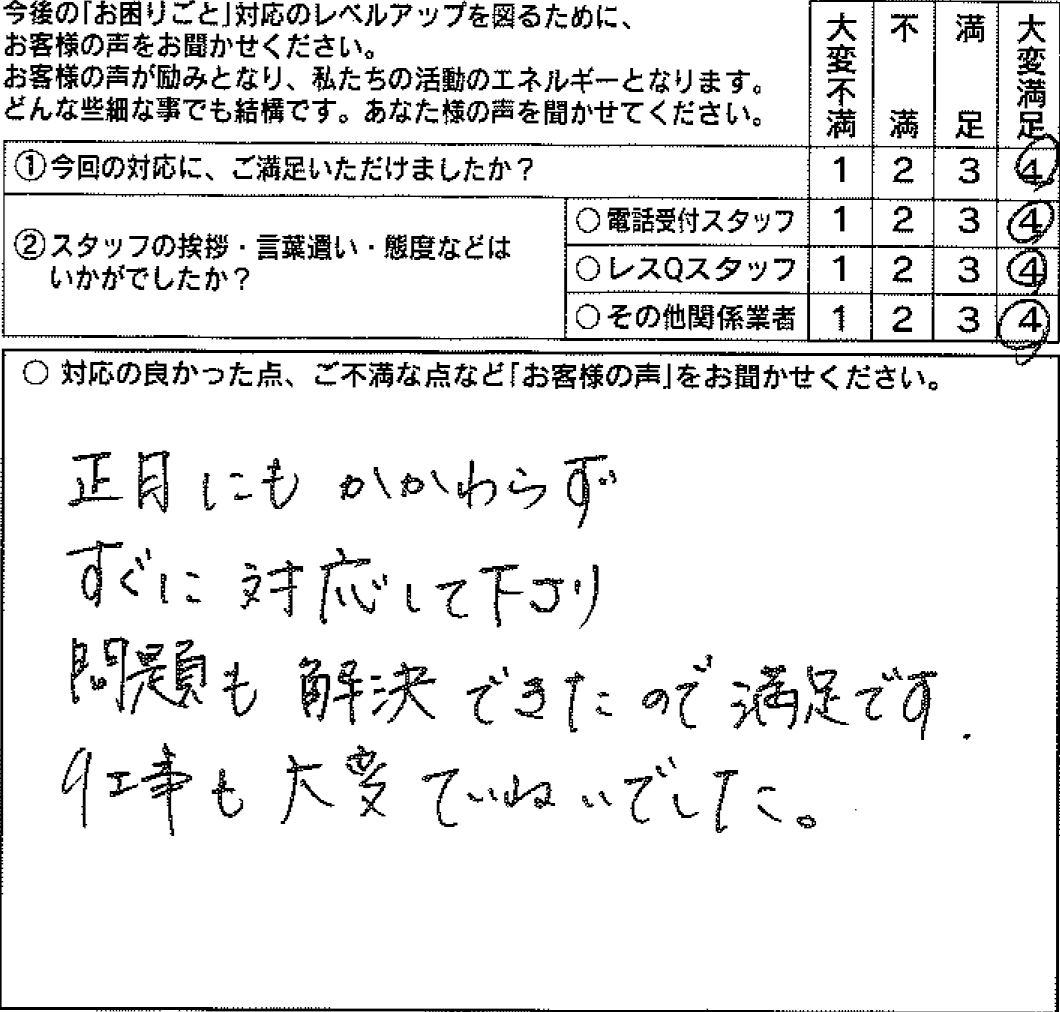 今後の「お困りごと」対応のレベルアップを図るために、
お客様の声をお聞かせください。
お客様の声が励みとなり、私たちの活動のエネルギーとなります。
どんな些細な事でも結構です。あなた様の声を聞かせてください。
大変不満 不満 満足 大変満足
①今回の対応に、ご満足いただけましたか? 1 2 3 4
②スタッフの挨拶・言葉遣い・態度などは
いかがでしたか?
○電話受付スタッフ 1 2 3 4
○レスQスタッフ 1 2 3 4
○その他関係業者 1 2 3 4
○ 対応の良かった点、ご不満な点など「お客様の声」をお聞かせください。
正月にもかかわらず
すぐに対応して下さり
問題も解決できたので満足です.
工事も大変ていねいでした。